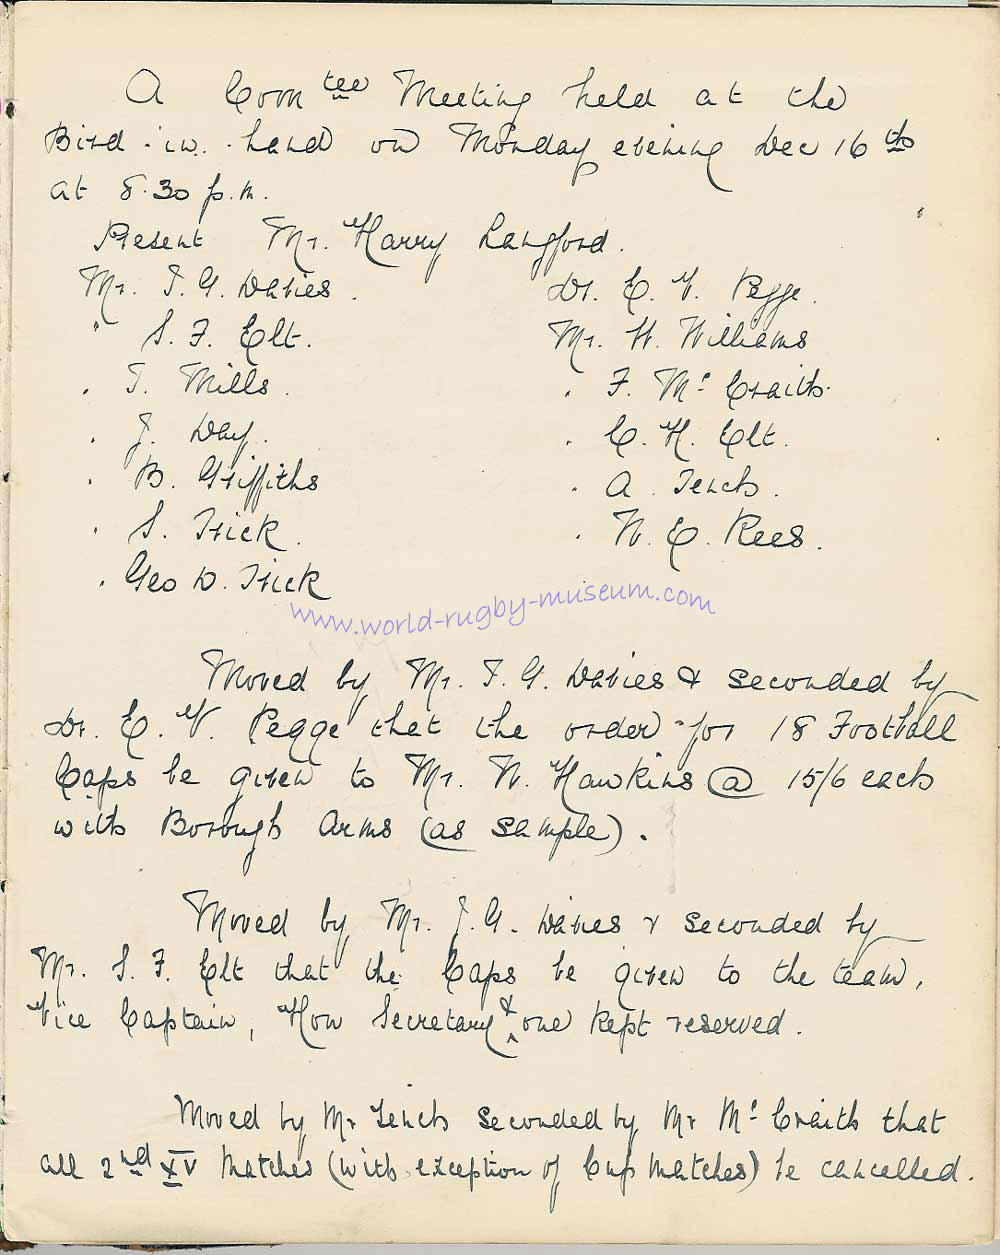 A Com tee Meeting held at the
Bird-in-hand on Monday evening Dec 16th
at 8.30 p.m.
Present Mr. Harry Langford.
Mr. T. G. Davies. Dr. E. V. Pegge.
" S. F. Elt. Mr. W. Williams
. T. Mills. . F. Mc Craith.
. J. Day. . C. H. Elt.
. B. Griffiths . A. Tench.
. S. Trick. . W. E. Rees.
. Geo D. Trick
www.world-rugby-museum.com
Moved by Mr. T. G. Davies & seconded by
Dr. E. V. Pegge that the order for 18 Football
Caps be given to Mr. W. Hawkins @ 15/6 each
with Borough Arms (as sample).
Moved by Mr. T. G. Davies & seconded by
Mr. S. F. Elt that the Caps be given to the team,
Vice Captain, Hon Secretary & one kept reserved.
Moved by Mr Tench seconded by Mr Mc Craith that
all 2nd XV Matches (with exception of Cup Matches) be cancelled.